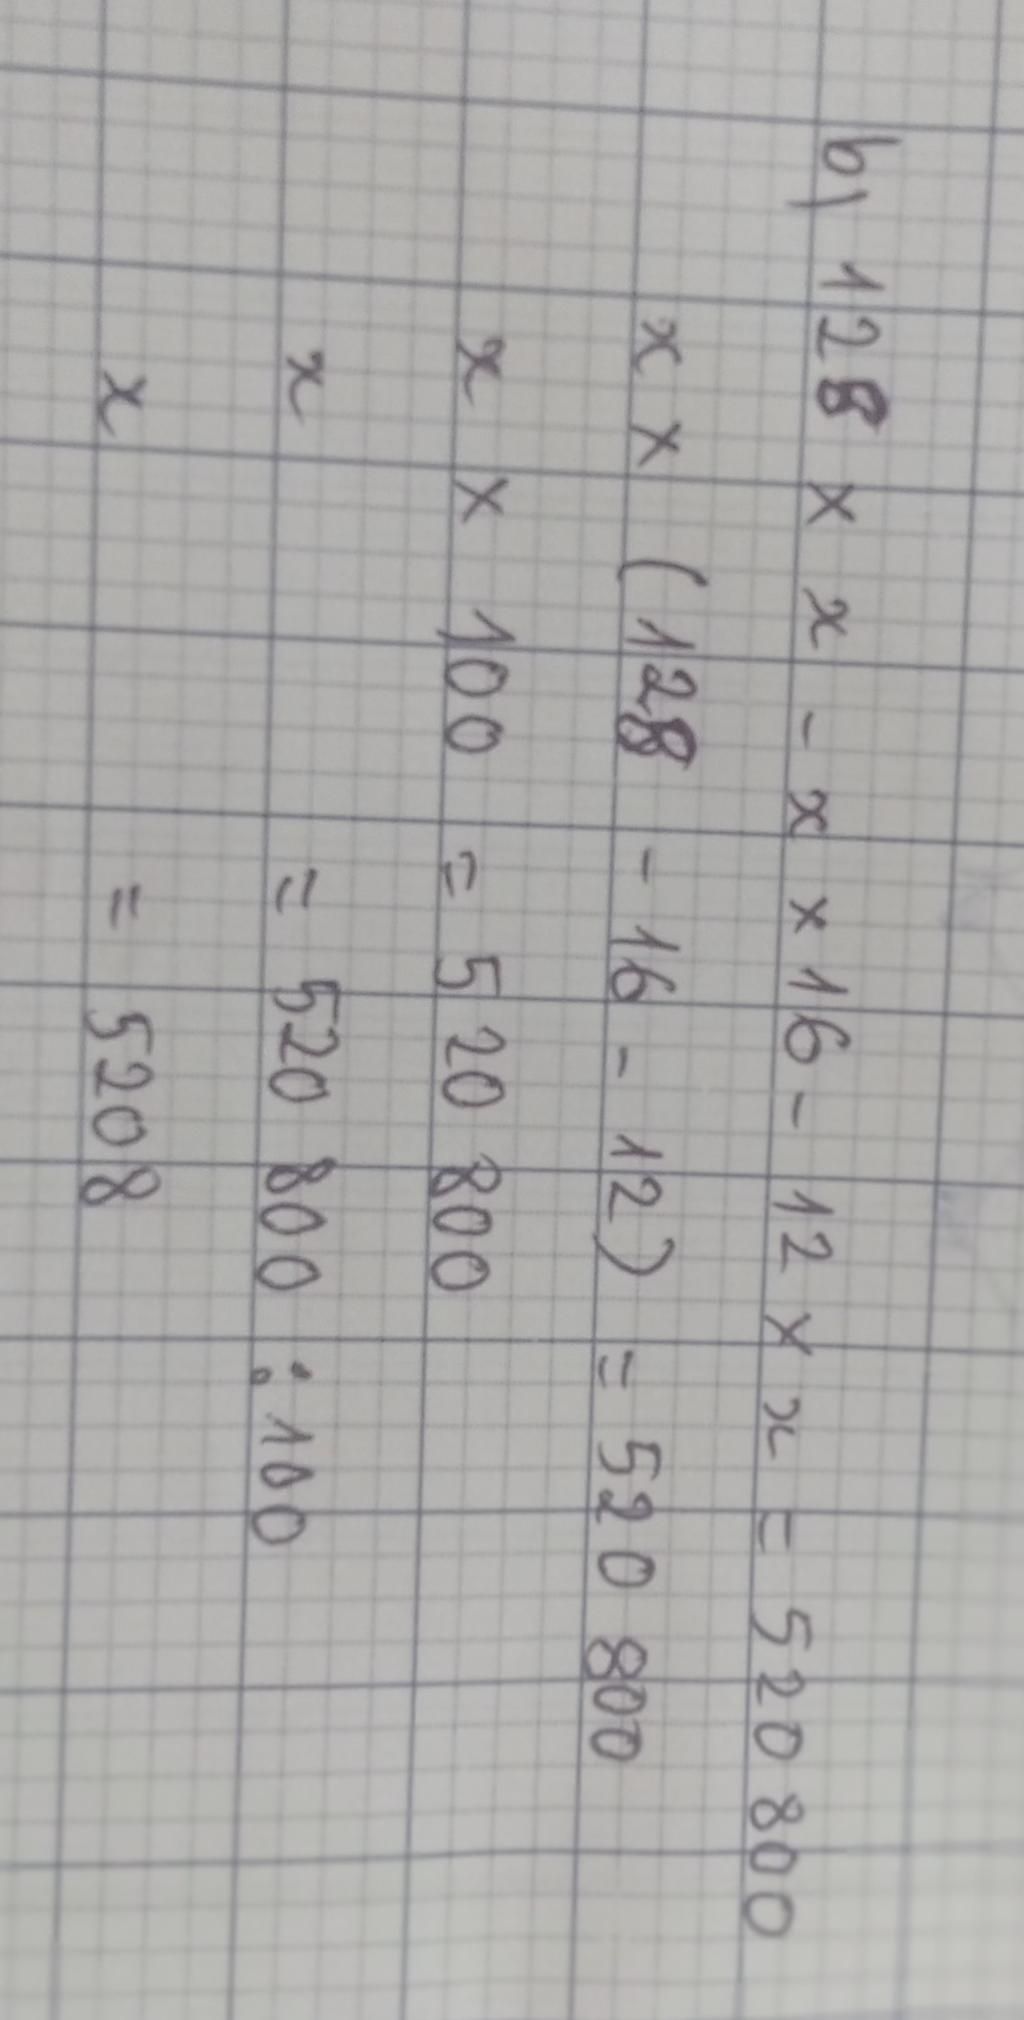 b) 128 × x - x × 16 - 12 × x = 520 800
x × (128 - 16 - 12) = 520 800
x × 100 = 520 800
x = 520 800 : 100
x = 5208